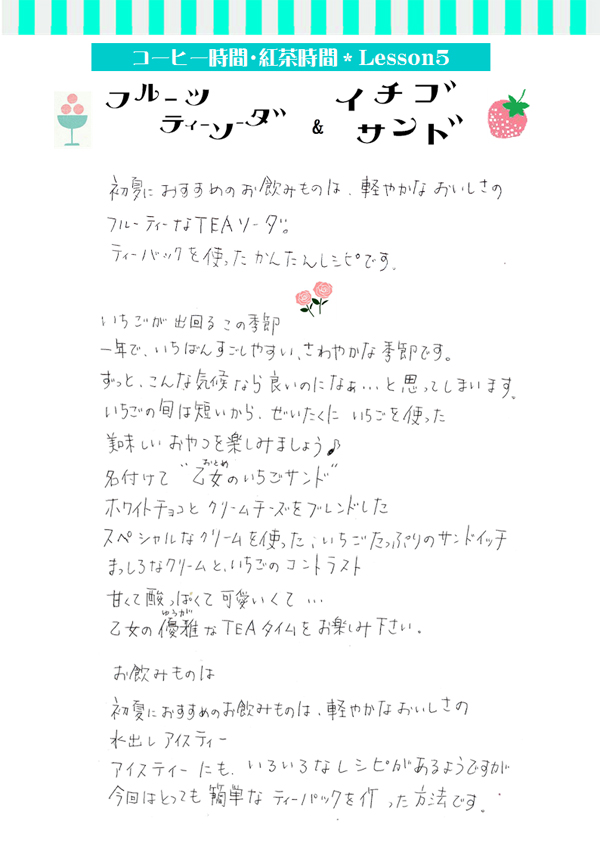 コーヒー時間・紅茶時間*Lesson5
フルーツ
ティーソーダ
&
イチゴ
サンド
初夏におすすめのお飲みものは、軽やかなおいしさの
フルーティーなTEAソーダ。
ティーバックを使ったかんたんレシピです。
いちごが出回るこの季節
一年で、いちばんすごしやすい、さわやかな季節です。
ずっと、こんな気候なら良いのになぁ…と思ってしまいます。
いちごの旬は短いから、ぜいたくにいちごを使った
美味しいおやつを楽しみましょう♪
名付けて"乙女(おとめ)のいちごサンド"
ホワイトチョコとクリームチーズをブレンドした
スペシャルなクリームを使った、いちごたっぷりのサンドイッチ
まっしろなクリームと、いちごのコントラスト
甘くて酸っぱくて可愛いくて…
乙女の優雅(ゆうが)なTEAタイムをお楽しみ下さい。
お飲みものは
初夏におすすめのお飲みものは、軽やかなおいしさの
水出しアイスティー
アイスティーにも、いろいろなレシピがあるようですが
今回はとっても簡単なティーパックを作った方法です。